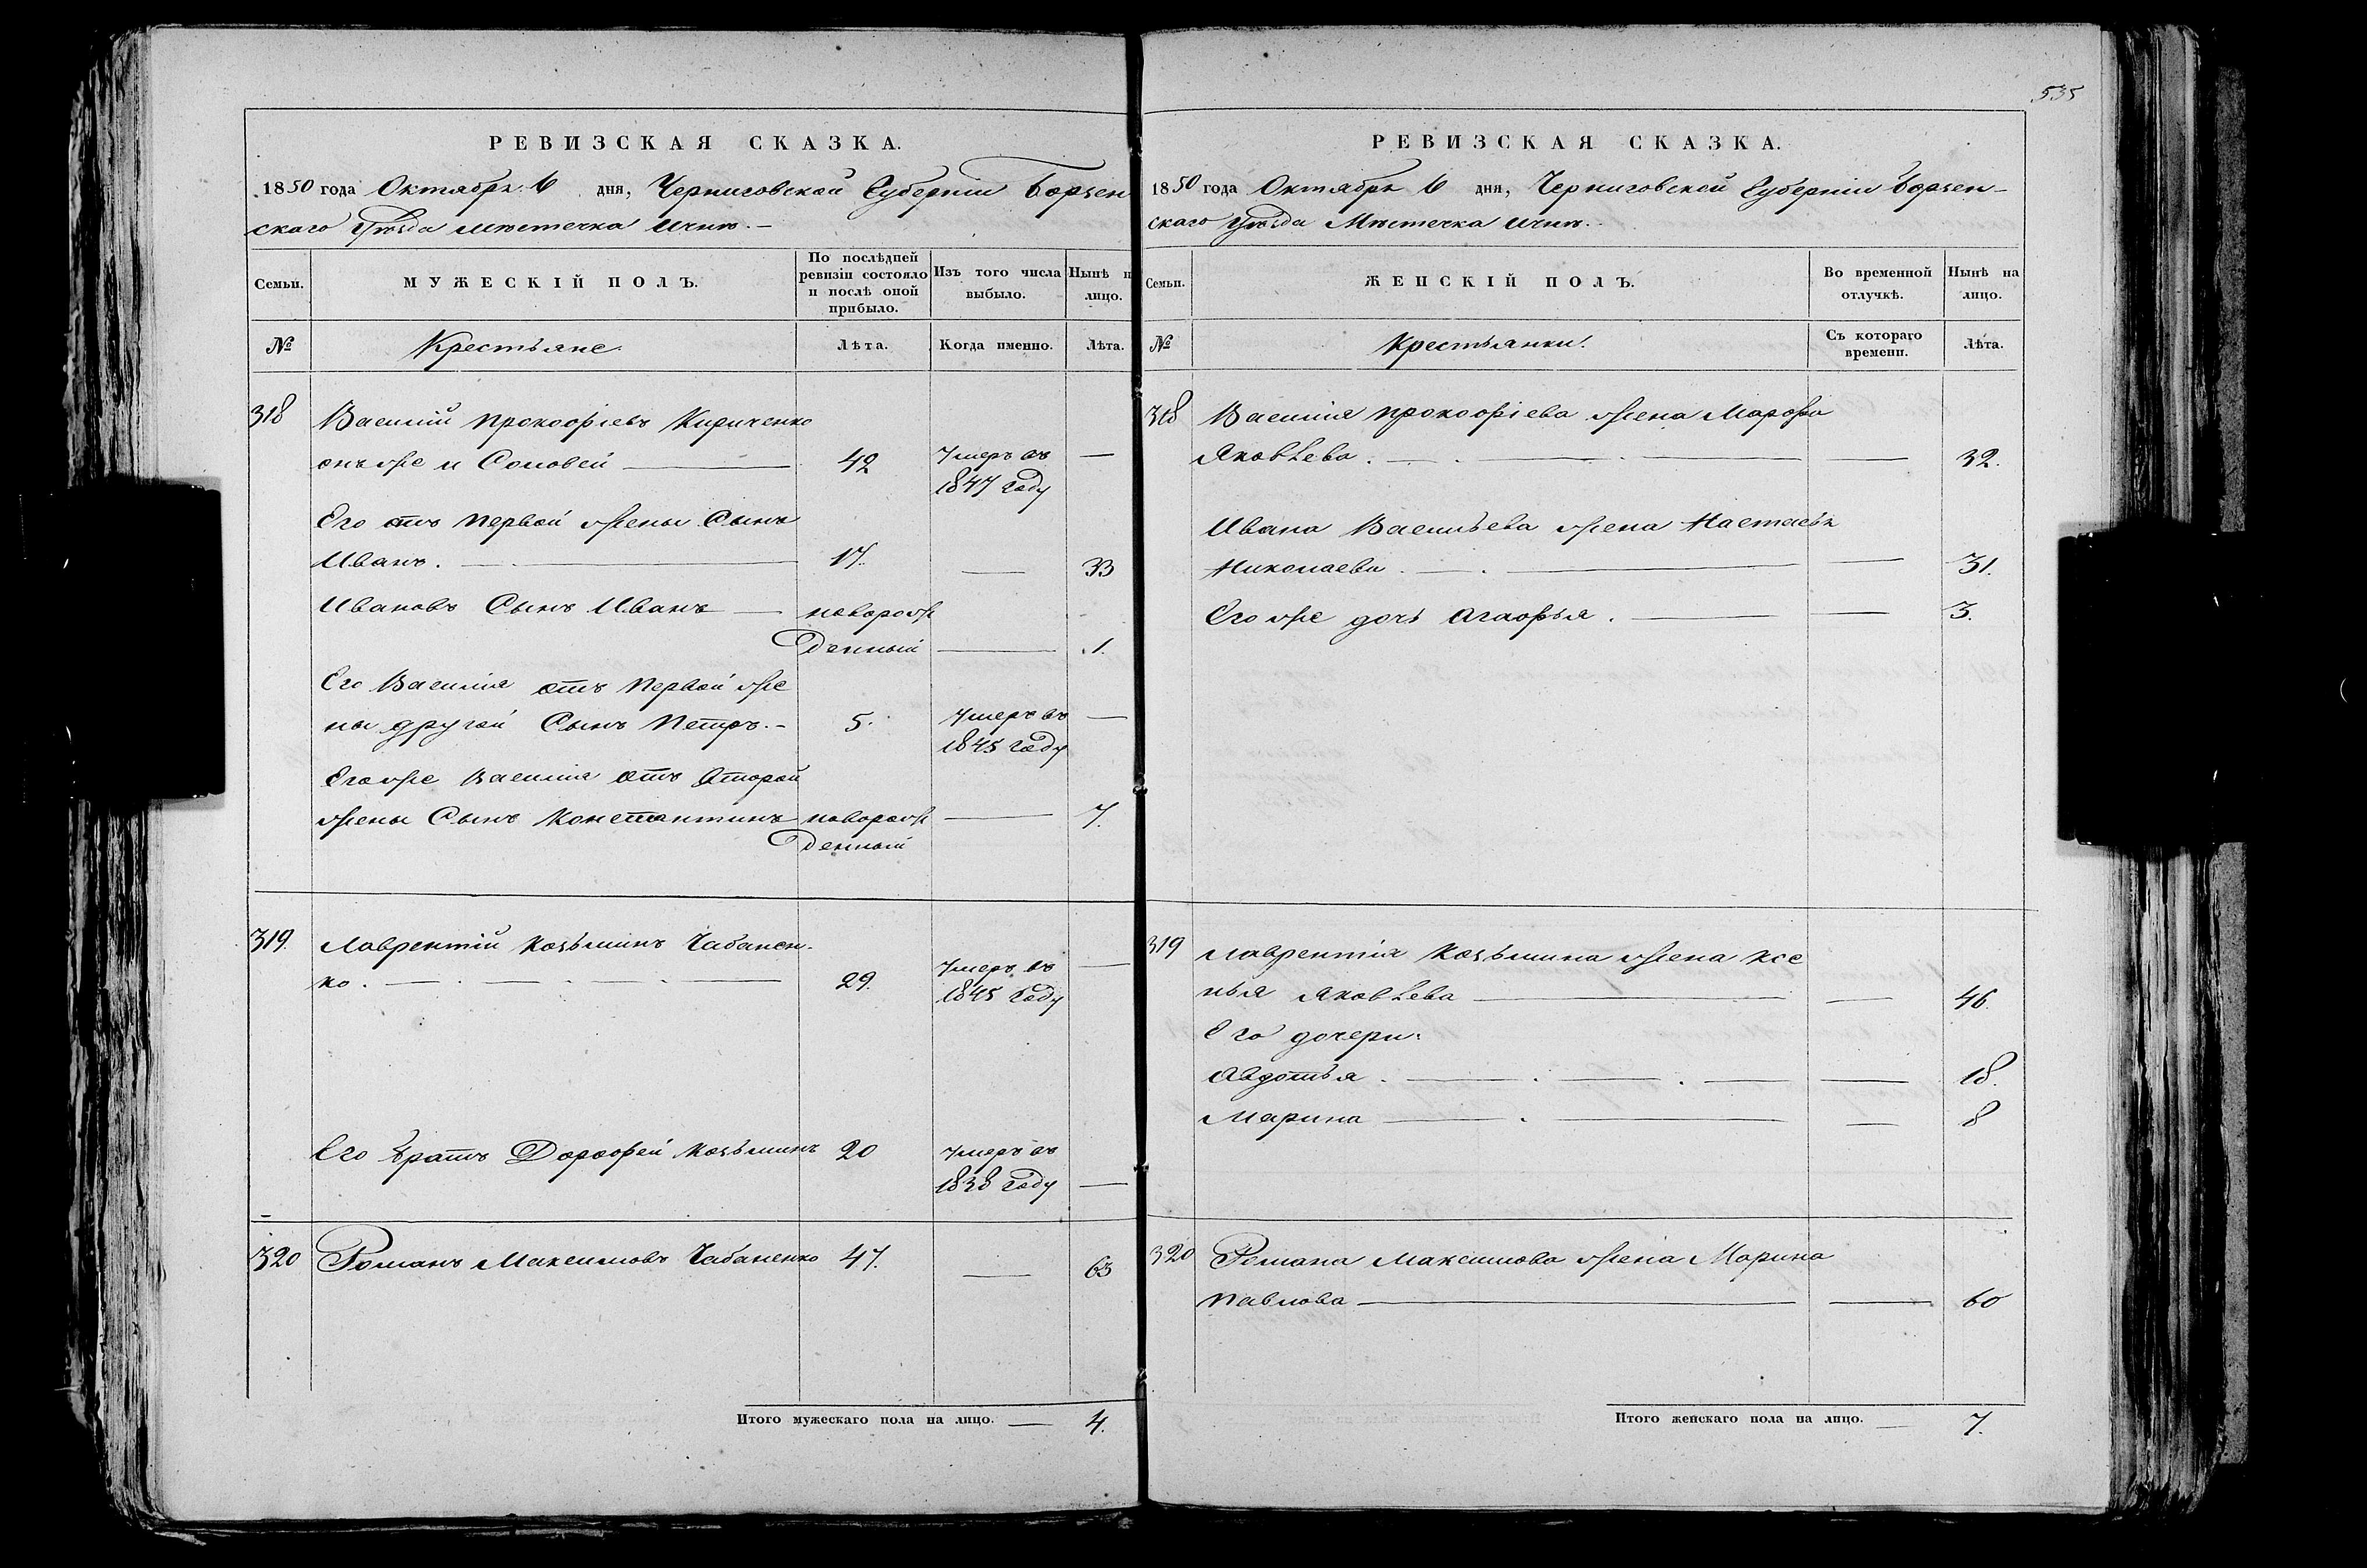 535
РЕВИЗСКАЯ СКАЗКА.
1850 года Октября 6 дня, Черниговской Губерніи Борзен
скаго Уѣзда мѣстечка Ични.-
Семьи. МУЖЕСКІЙ ПОЛЪ. По послѣдней ревизіи состояло и послѣ оной прибыло. Изъ того числа выбыло. Нынѣ н лицо.
№ Крестьяне Лѣта. Когда именно. Лѣта.
318 Василій Прокофіевъ Кириченко
онъ же и Соловей — 42 Умеръ въ —
1847 году
Его отъ первой жены Сынъ
Иванъ. — 17. — 33
Ивановъ Сынъ Иванъ —новорож
денный — 1.
Его Василія отъ первой же
ны другой Сынъ Петръ.- 5. Умеръ въ —
1845 году
Его же Василія отъ второй
жены Сынъ Константинъ новорож — 7.
денный
319. Лаврентій Козьминъ Чабанен-
ко. — 29. Умеръ въ —
1845 году
Его братъ Дорофей Козьминъ 20 Умеръ въ
1838 году —
320 Романъ Максимовъ Чабаненко 47. — 63
Итого мужескаго пола на лицо. — 4.
РЕВИЗСКАЯ СКАЗКА.
1850 года Октября 6 дня, Черниговской Губерніи Борзен-
скаго Уѣзда Мѣстечка Ични.-
Семьи. ЖЕНСКІЙ ПОЛЪ. Во временной отлучкѣ. Нынѣ на лицо.
№ Крестьянки. Съ котораго времени. Лѣта.
318 Василія Прокофіева жена Марфа
Яковлева. — — 32.
Ивана Васильева жена Настасья
Николаева. — — 31.
Его же дочь Агафья. — — 3.
319 Лаврентія Козьмина жена Ксе
нья Яковлева — — 46.
Его дочери:
Авдотья. — — 18.
Марина — — 8
320 Романа Максимова жена Марина
Павлова — — 60
Итого женскаго пола на лицо. — 7.